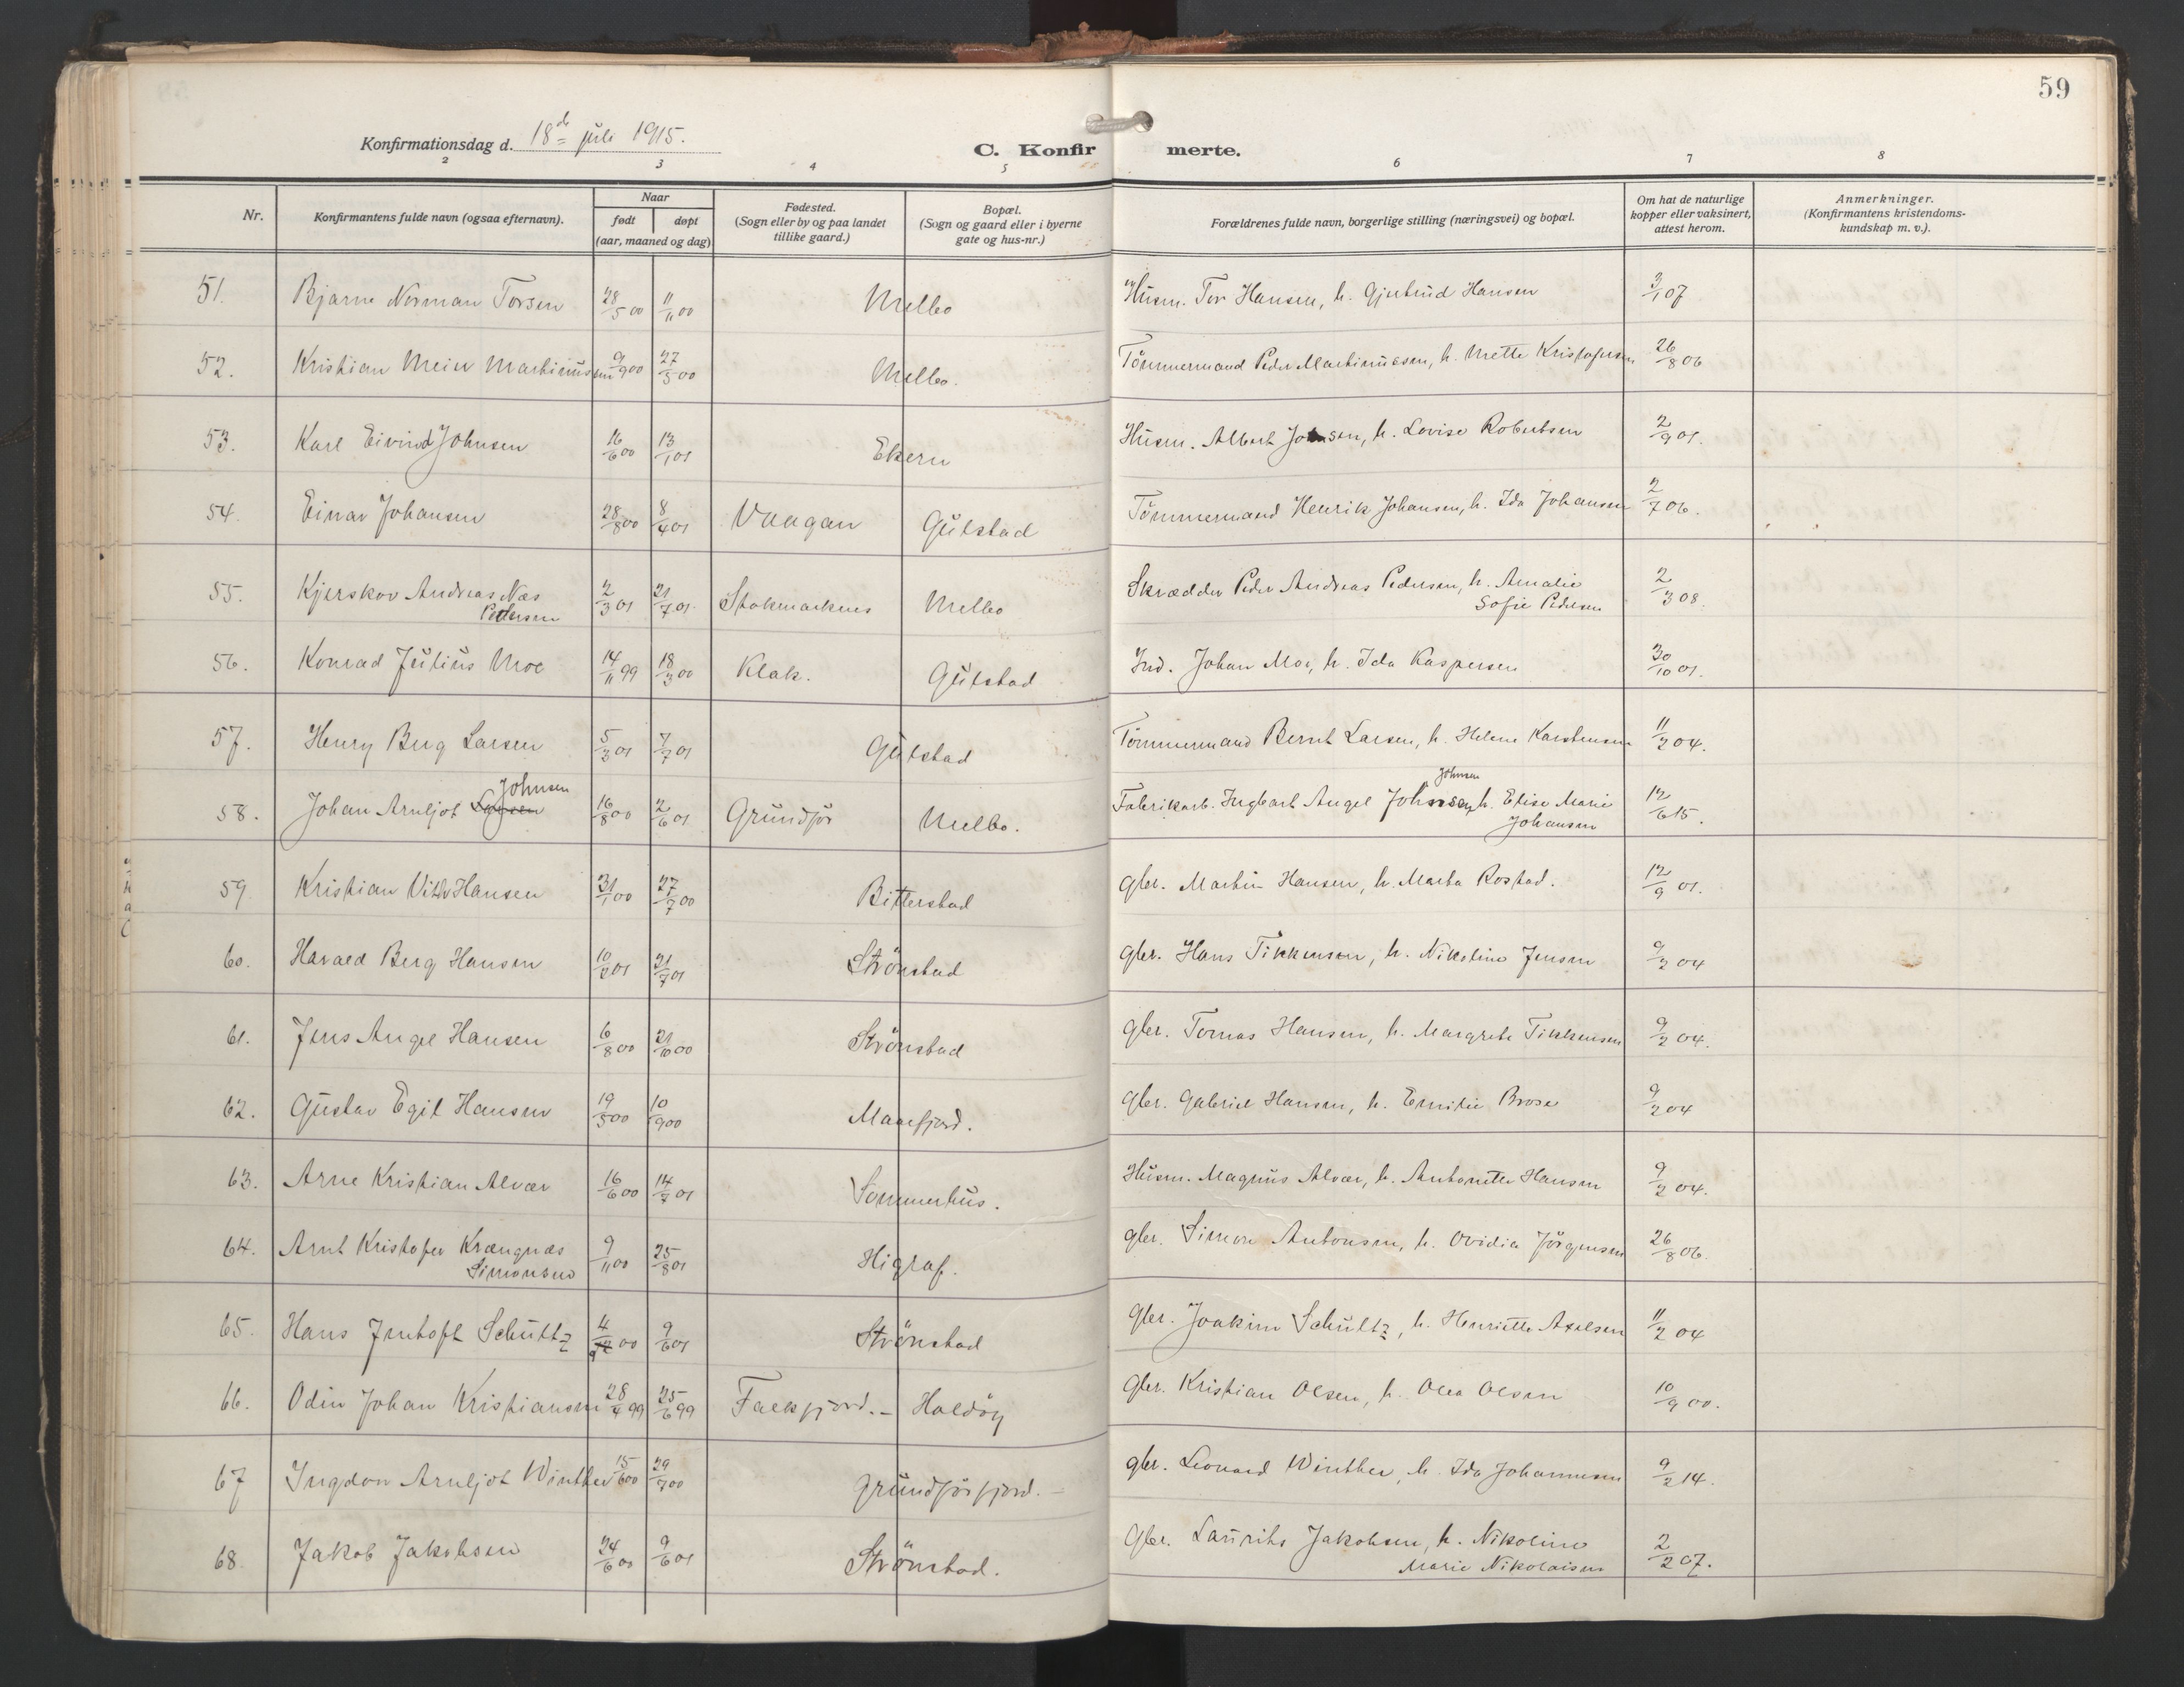 59
Konfirmationsdag d. 18de juli 1915.
C. Konfirmerte.
2 3 4 5 6 7 8
Nr.
Konfirmantens fulde navn (ogsaa efternavn).
Naar
født døpt
(aar, maaned og dag)
Fødested.
(Sogn eller by og paa landet
tillike gaard.)
Bopæl.
(Sogn og gaard eller i byerne
gate og hus-nr.)
Forældrenes fulde navn, borgerlige stilling (næringsvei) og bopæl.
Om hat de naturlige
kopper eller vaksinert,
attest herom.
Anmerkninger.
(Konfirmantens kristendoms-
kundskap m. v.).
51. Bjarne Norman Torsen 28/5 00 11/11 00 Melbo Husm. Tor Hansen, h. Gjertrud Hansen 3/1 07
52. Kristian Meier Martinussen 9/9 00 27/5 00 Melbo. Tömmermand Peder Martinussen, h. Mette Kristofersen 26/8 06
53. Karl Eivind Johnsen 16/6 00 13/1 01 Ekern Husm. Albert Johnsen, h. Lovise Robertsen 2/9 01.
54. Einar Johansen 28/8 00 8/4 01 Vaagan Gulstad Tömmermand Henrik Johansen, h. Ida Johansen 2/7 06.
55. Kjerskov Andreas Næs
Pedersen 2/3 01 21/7 01. Stokmarknes Melbo Skrædder Peder Andreas Pedersen, h. Amalie
Sofie Pedersen 2/3 08.
56. Konrad Julius Moe 14/11 99 18/3 00 Klak. Gulstad Ind. Johan Moe, h. Ida Kaspersen 30/10 01.
57. Henry Berg Larsen 5/3 01 7/7 01 Gulstad Tömmermand Bernt Larsen, h. Helene Karstensen 11/2 04.
58. Johan Arnljot Larsen Johnsen 16/8 00 2/6 01 Grundför Melbo. Fabrikarb. Ingbart Angel Johnsen, h. Elise Marie
Johnsen
Johansen 12/6 15.
59. Kristian Hansen 31/1 00 27/7 00 Bitterstad Gbr. Martin Hansen, h. Marta Rostad. 12/9 01.
60. Harald Berg Hansen 10/2 01 21/7 01 Strönstad Gbr. Hans Tikkensen, h. Nikoline Jensen 9/2 04
61. Jens Angel Hansen 6/8 00 21/10 00 Strönstad Gbr. Tomas Hansen, h. Margrete Tikkensen 9/2 04.
62. Gustav Egil Hansen 19/5 00 10/9 00 Maarfjord. Gbr. Gabriel Hansen, h. Emilie Brose 9/2 04
63. Arne Kristian Alvær 16/6 00 14/7 01 Sommerhus. Husm. Magnus Alvær, h. Antonette Hansen 9/2 04.
64. Arnt Kristofer Krængnæs
Simonsen 9/11 00 25/8 01 Higraf. Gbr. Simon Antonsen, h. Ovidia Jörgensen 26/8 06.
65. Hans Jentoft Schültz 4/9 00 9/6 01 Strönstad Gbr. Joakim Schültz, h. Henriette Axelsen 11/2 04
66. Odin Johan Kristiansen 28/4 99 25/6 99 Falkfjord. – Haldöy Gbr. Kristian Olsen, h. Olea Olsen 10/9 00.
67 Ingdon Arnljot Winther 15/6 00 29/7 00 Grundförfjord. – Gbr. Leonard Winther, h. Ida Johannesen 9/2 14.
68. Jakob Jakobsen 24/6 00 9/6 01 Strönstad. Gbr. Laurits Jakobsen, h. Nikoline
Marie Nikolaisen 2/2 07.